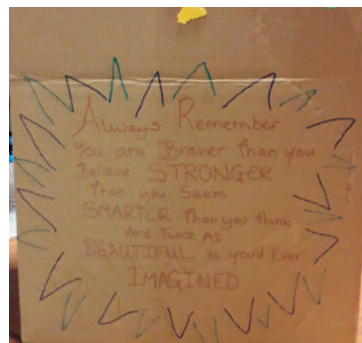 Always Remember
You are Braver Than you
Believe STRONGER
Than you Seem
SMARTER Than you think
And Twice As
BEAUTIFUL As you'd Ever
IMAGINED